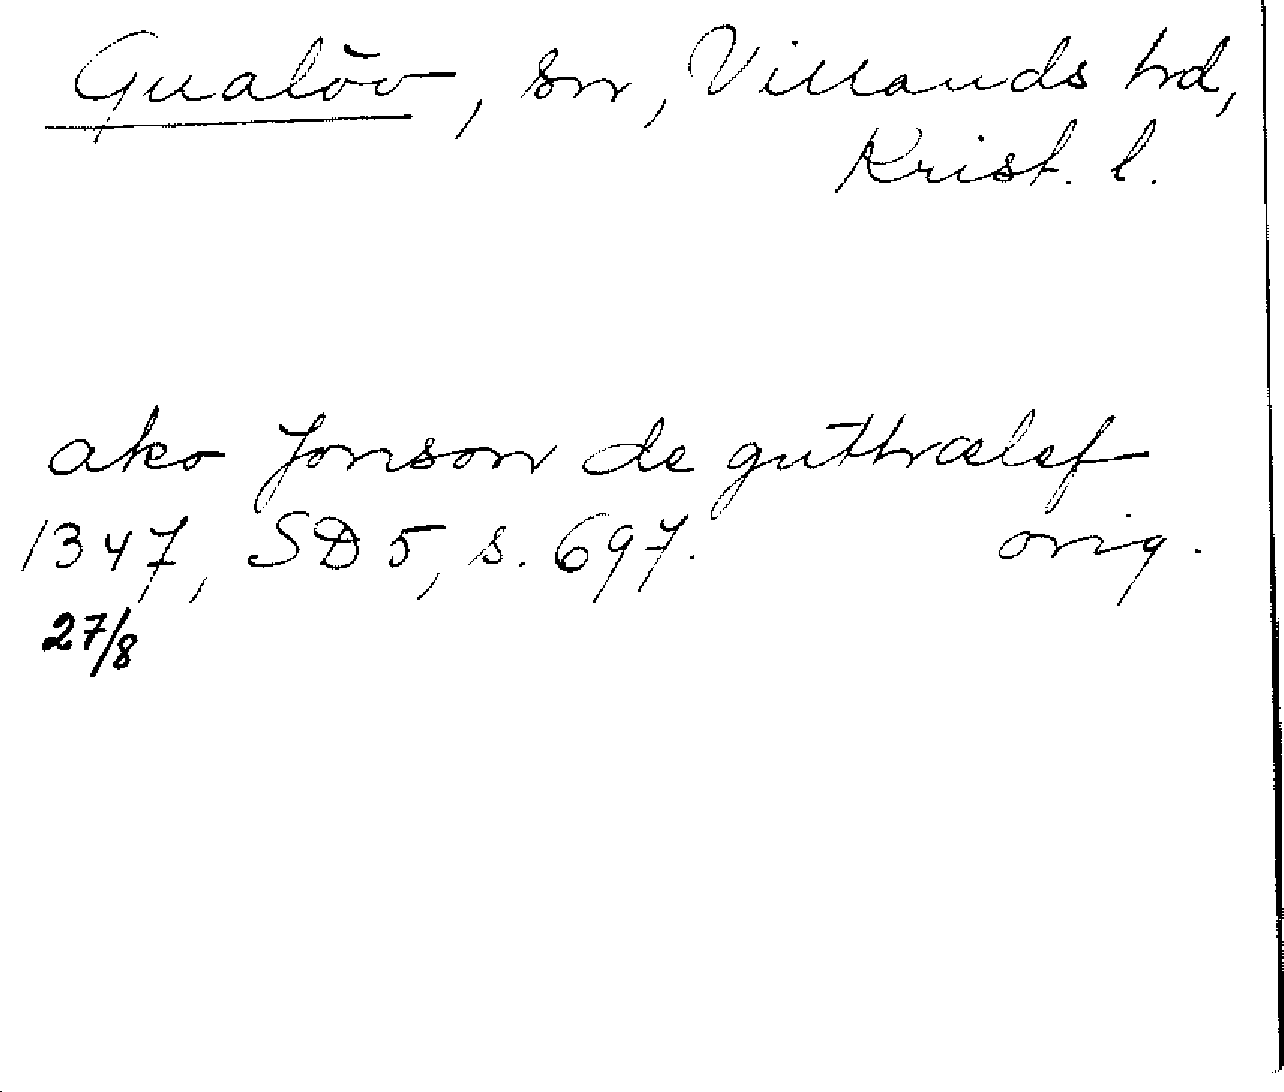 Gualöv, sn, Villands hd,
Krist. l.
ako Jonson de guthælef
1347, SD 5, s. 697. orig.
27/8